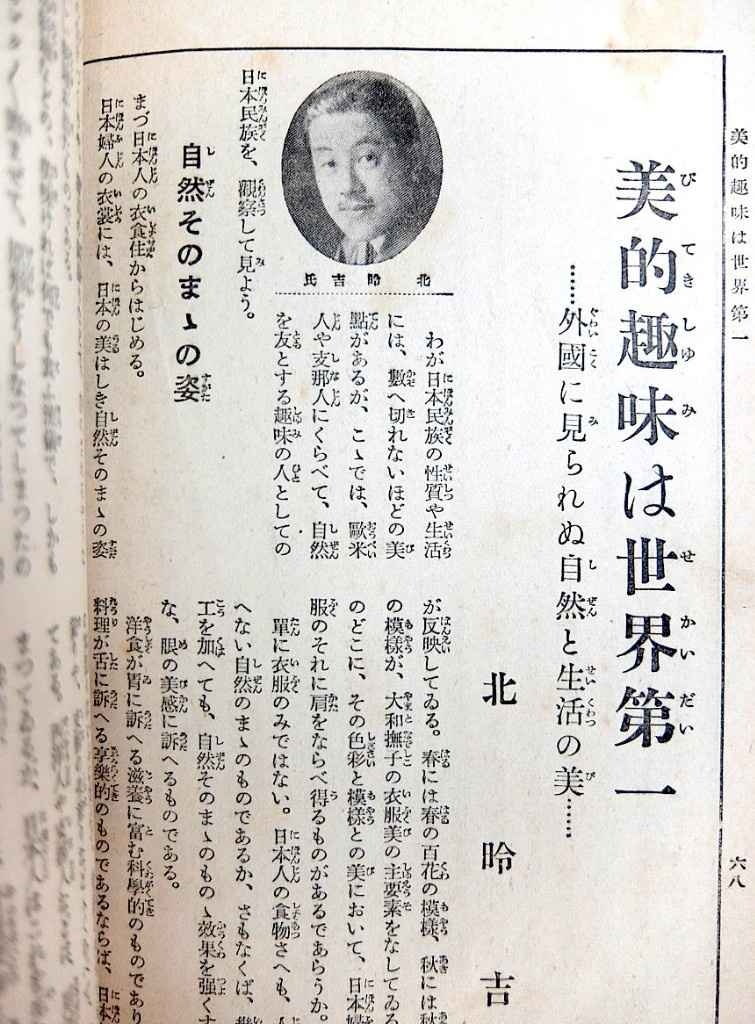 美的趣味は世界第一
六八
美的趣味は世界第一
……外國に見られぬ自然と生活の美……
北昤吉
北昤吉氏
わが日本民族の性質や生活
には、數へ切れないほどの美
點があるが、こゝでは、歐米
人や支那人にくらべて、自然
を友とする趣味の人としての
日本民族を、觀察して見よう。
自然そのまゝの姿
まづ日本人の衣食住からはじめる。
日本婦人の衣裳には、日本の美はしき自然そのまゝの姿
が反映してゐる。春には春の百花の模樣、秋には秋
の模樣が、大和撫子の衣服美の主要素をなしてゐる
のどこに、その色彩と模樣との美において、日本婦
服のそれに肩をならべ得るものがあるであらうか。
單に衣服のみではない。日本人の食物さへも、人
へない自然のまゝのものであるか、さもなくば、
工を加へても、自然そのまゝのものゝ效果を強くす
な、眼の美感に訴へるものである。
洋食が胃に訴へる滋養に富む科學的のものであり
料理が舌に訴へる享樂的のものであるならば、日本